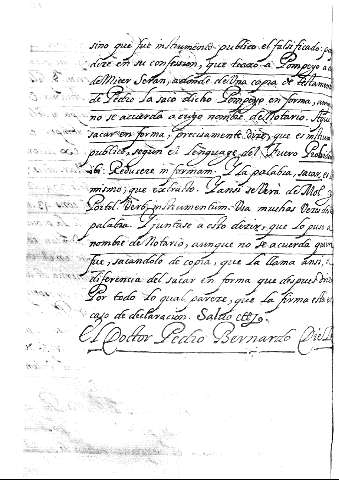 sino que fue instrumento publico el falsificado: por
dize en su confession, que traxo a Pompeyo a c
de Micer Seran, adonde de Una copia de testamento
de Pedro la saco dicho Pompeyo en forma, aunq
no se acuerda a cuyo nombre de Notario. Aqui
sacar en forma, precisamente dize, que es instrum
publico, segun el lenguage del Fuero
ibi: Reducere in formam: Y la palabra, sacar, es
mismo, que extraho. Y ansi se Vera de Mol.
Portol. Verb. instrumentum. Usa muchas Vezes dicha
palabra. Y juntase a esto dezir, que lo puso a
nombre de Notario, aunque no se acuerda quien
fue, sacandolo de copia, que la llama ansi, a
diferencia del sacar en forma que despues dize
Por todo lo qual, parece, que la firma esta en
caso de declaracion. Salvo &c.
El Doctor Pedro Bernardo